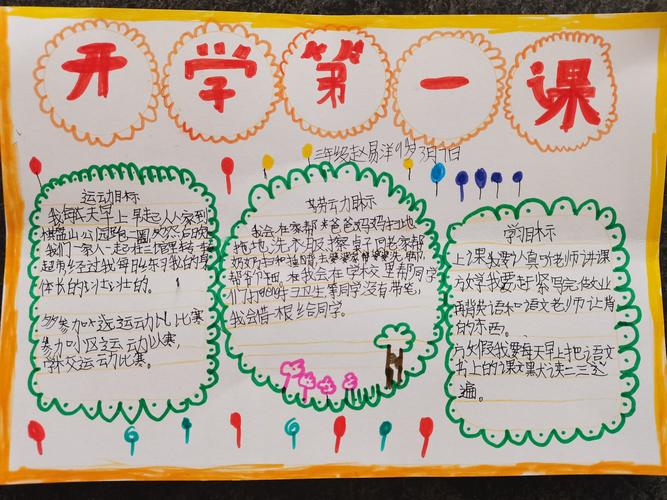 开学第一课
三年级赵易洋9岁3月1日
运动目标
我每天早上早起人家到
棋盘山公园跑一圈然后
我们一家人一起在三馆里转转
超市经过我每日的练习我的身
体长的壮壮的。
参加遥远运动比赛
参加小区运动比赛，
学校运动比赛。
劳动力目标
我会在家帮爸爸妈妈扫地
拖地，洗衣服擦桌子回老家帮
奶奶
帮。在我会在学校里帮同学
们打扫卫生等同学没有带笔，
我会借一根给同学。
学习目标
上课来要认真听老师讲课
放学我要赶紧写完作业
再背英语和语文老师让背
的东西。
放假我要每天早上把语文
书上的课文默读二三这
遍。